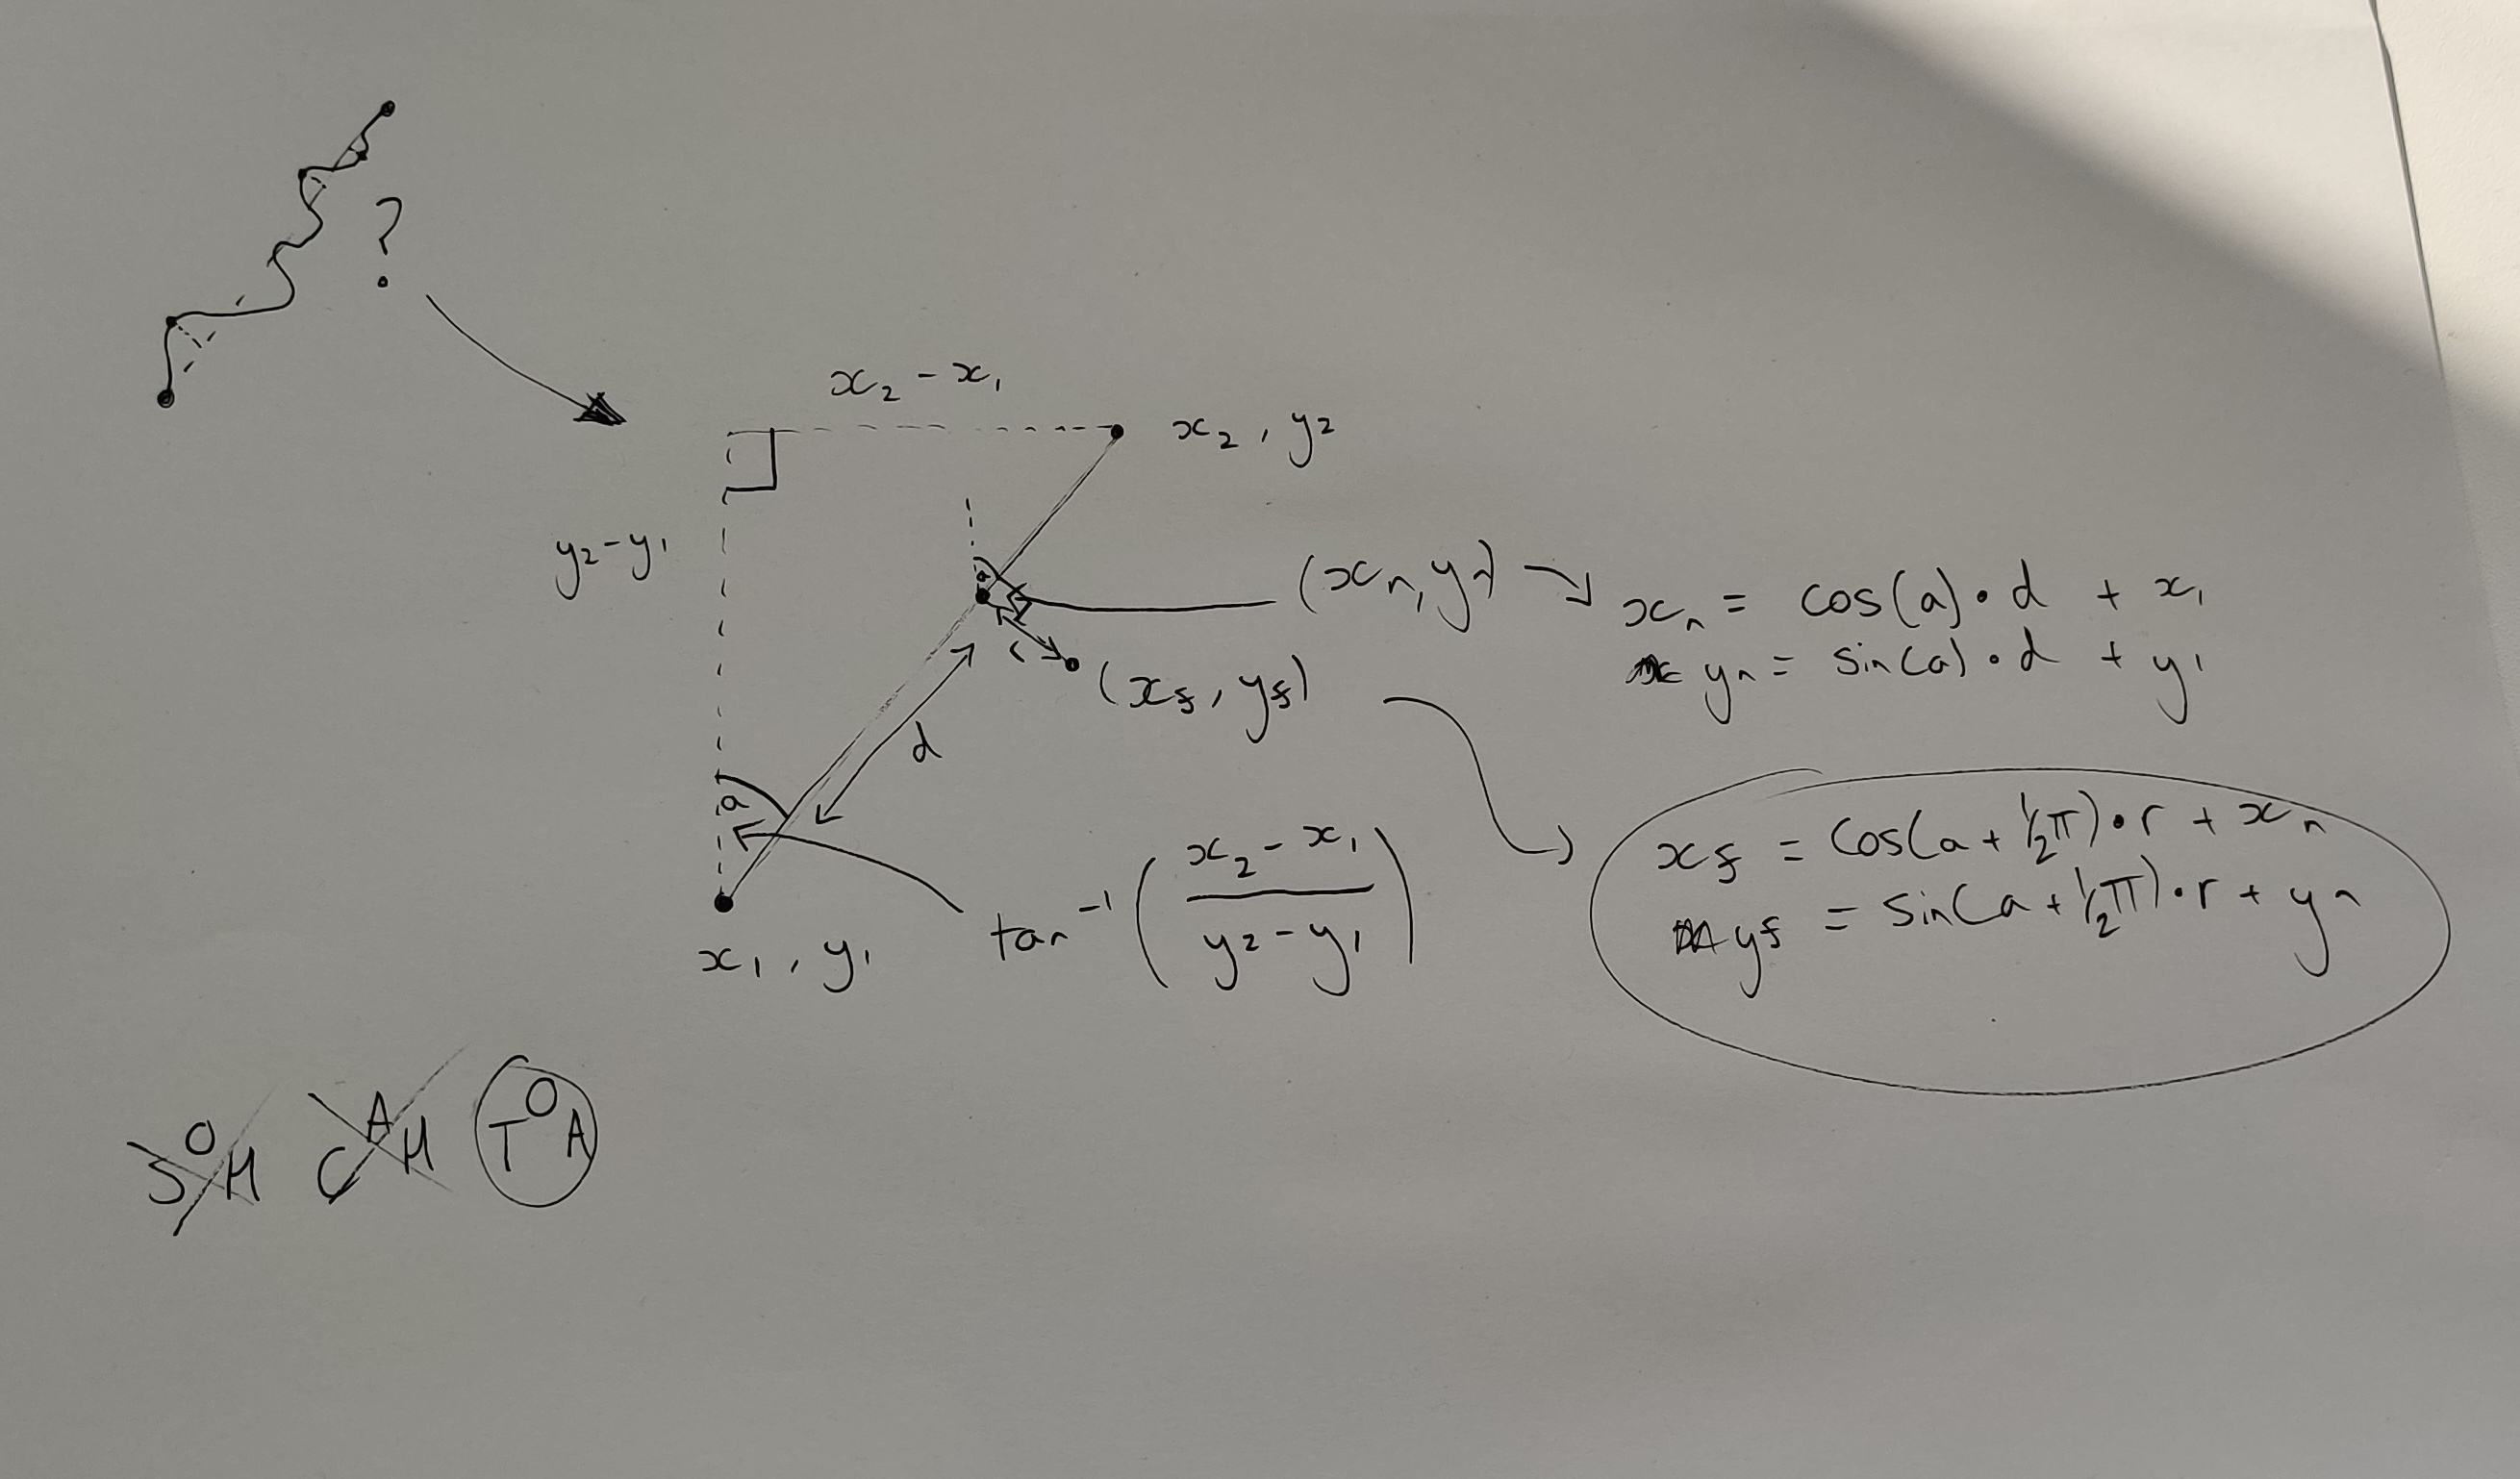 ?
x₂ - x₁
x₂, y₂
y₂-y₁
a
(xₙ, yₙ)
xₙ = cos(a)·d + x₁
yₙ = sin(a)·d + y₁
r
(x_f, y_f)
d
a
x_f = cos(a + ½π)·r + xₙ
y_f = sin(a + ½π)·r + yₙ
tan⁻¹((x₂ - x₁)/(y₂-y₁))
x₁, y₁
SOH CAH TOA